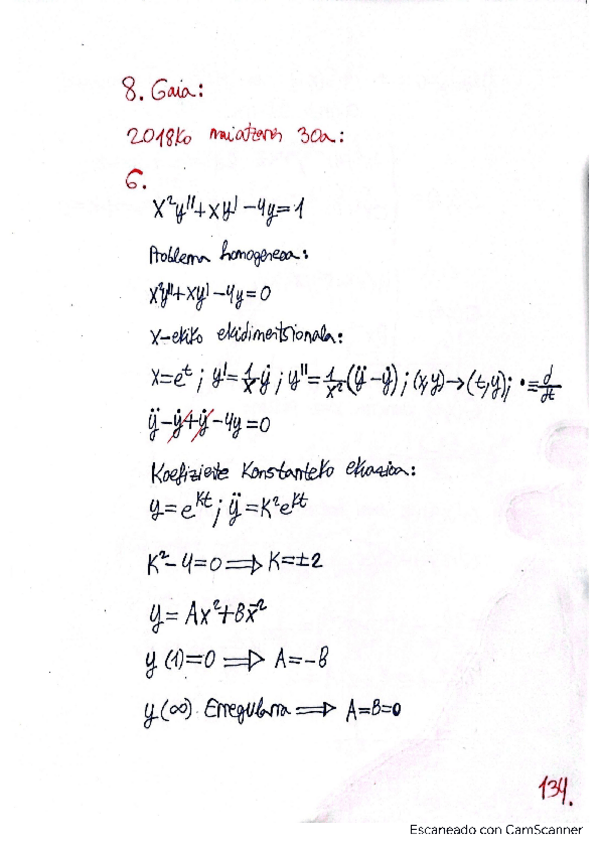 8. Gaia:
2018ko maiatzaren 30a:
6.
x²y''+xy'-4y=1
Problema homogeneoa:
x²y''+xy'-4y=0
x-ekiko ekidimentsionala:
x=eᵗ; y'=1/x ẏ; y''=1/x²(ÿ-ẏ); (x,y)→(t,y); •≡d/dt
ÿ-ẏ+ẏ-4y=0
Koefiziente Konstanteko ekuazioa:
y=eᴷᵗ; ÿ=K²eᴷᵗ
K²-4=0⟹K=±2
y=Ax²+Bx⁻²
y(1)=0 ⟹ A=-B
y(∞) Erregularra ⟹ A=B=0
134.
Escaneado con CamScanner